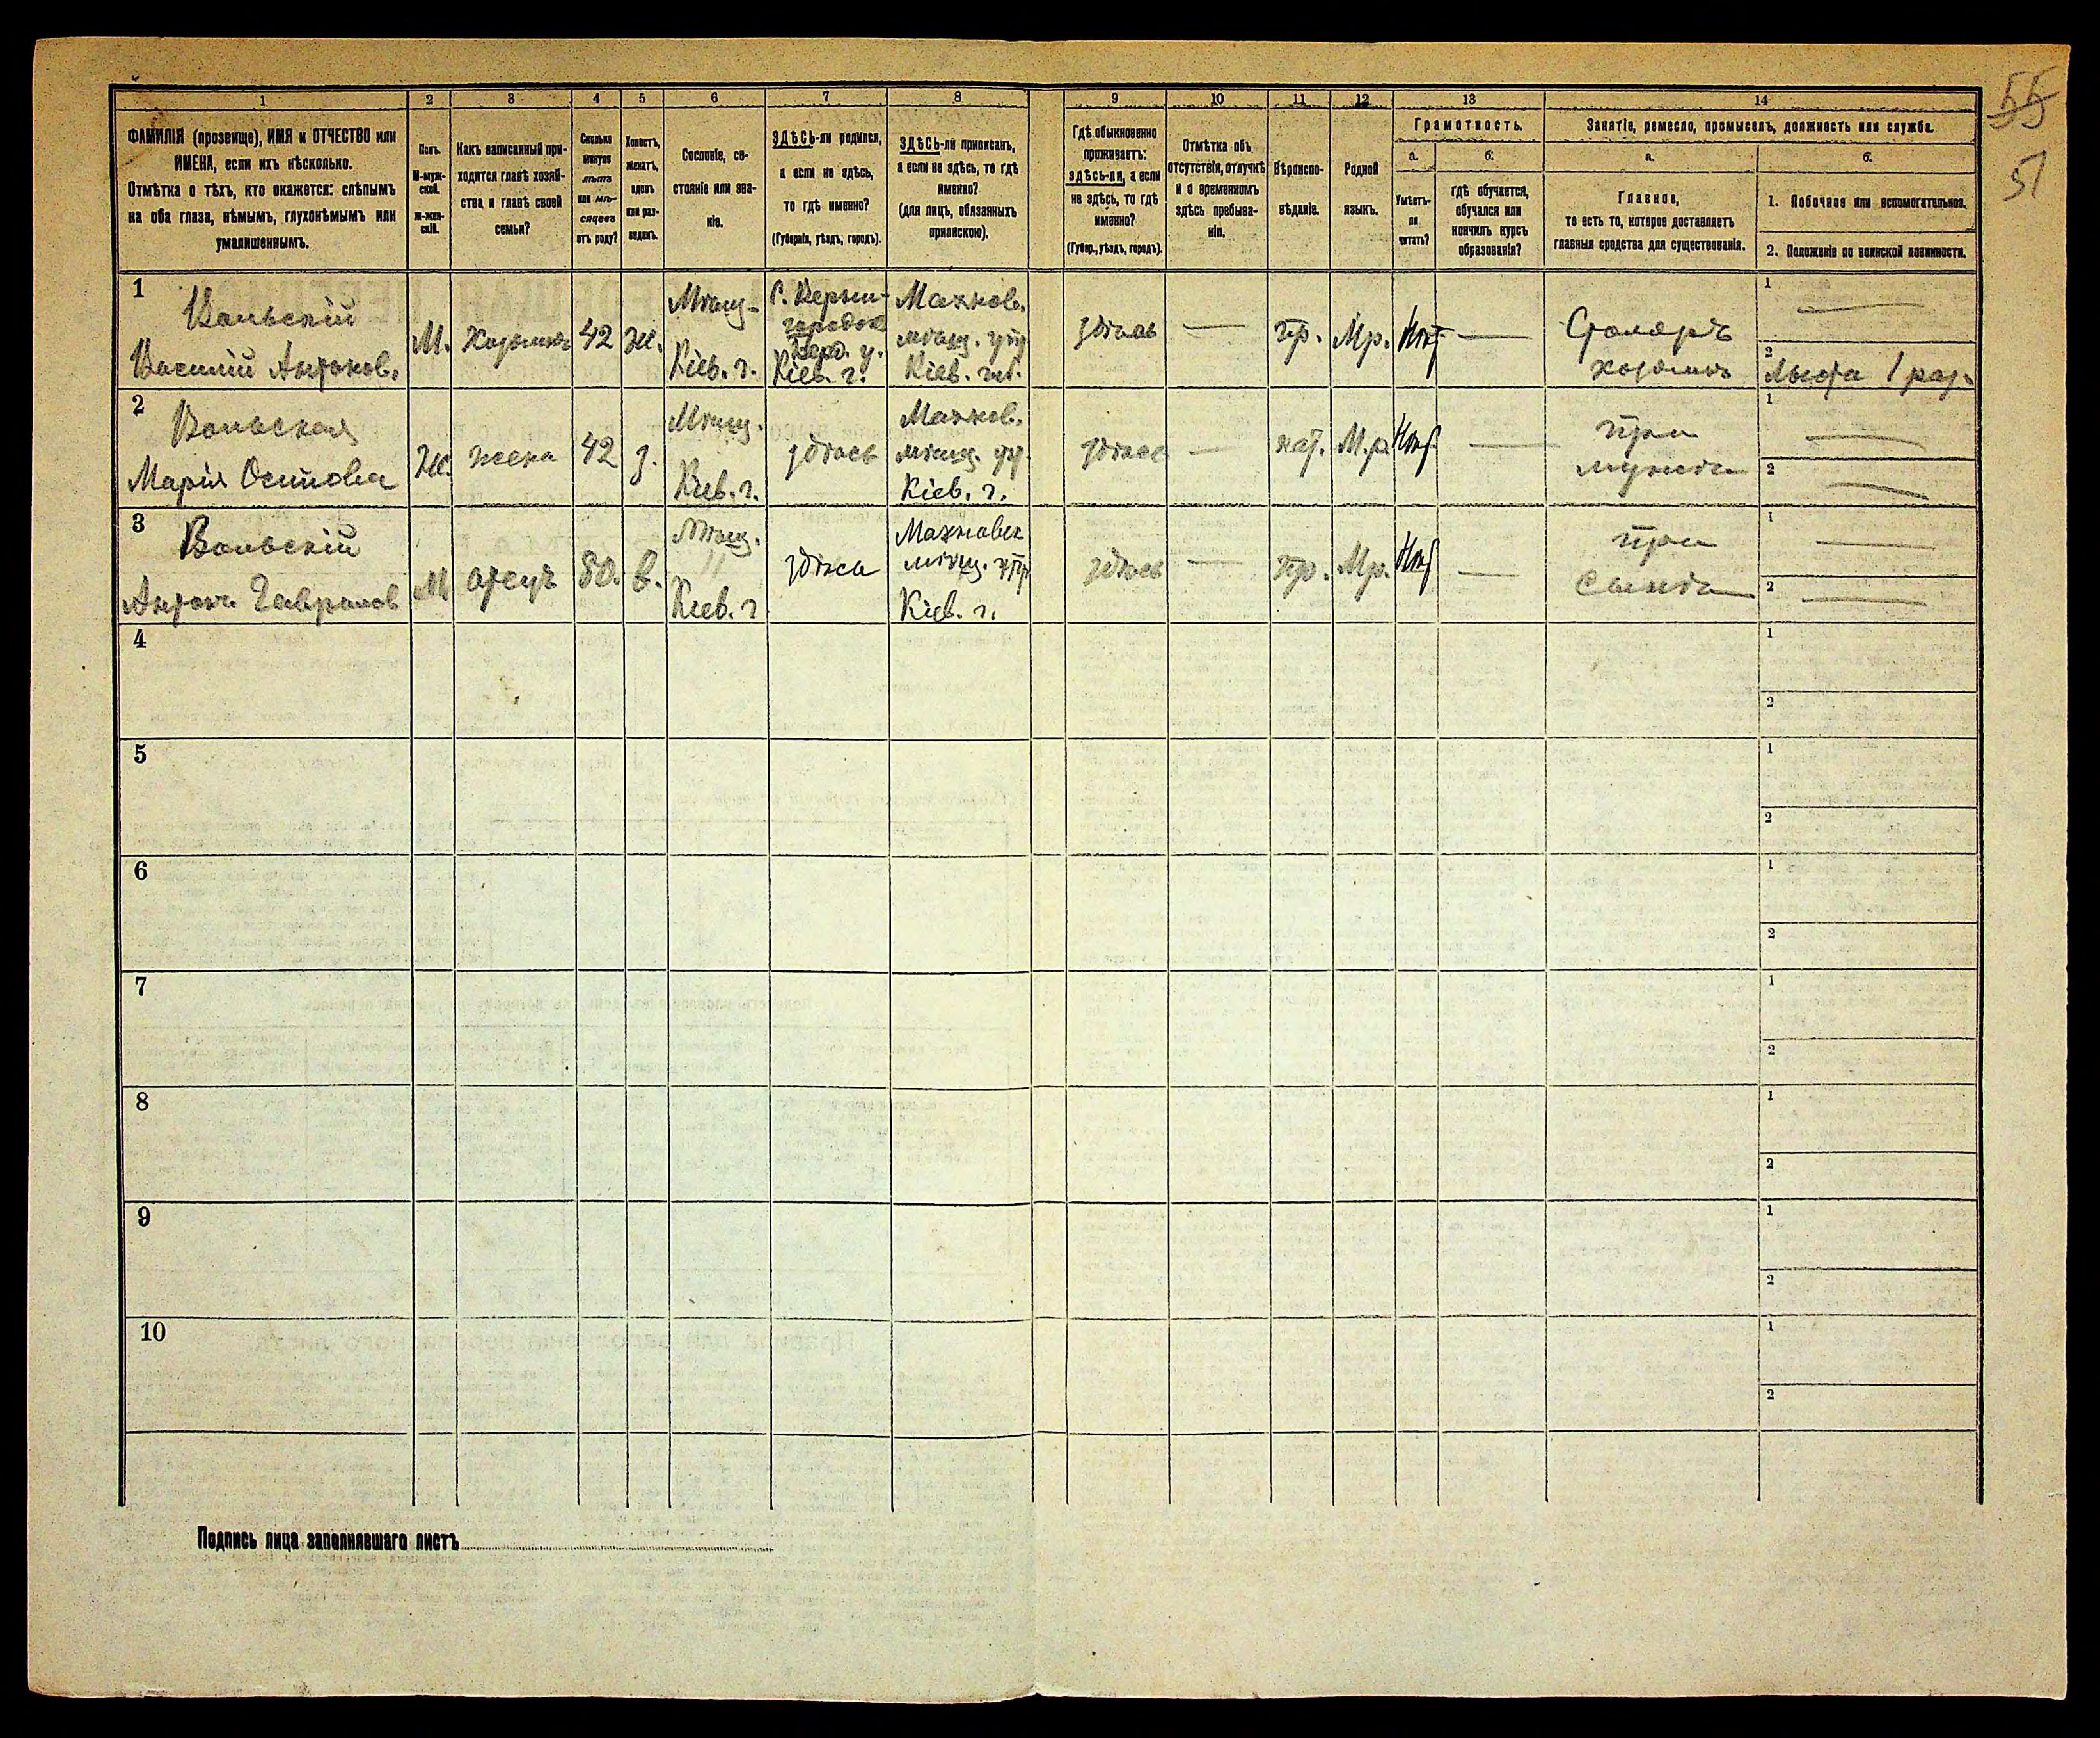 55
51
1 2 3 4 5 6 7 8 9 10 11 12 13 14
ФАМИЛІЯ (прозвище), ИМЯ и ОТЧЕСТВО или
ИМЕНА, если ихъ нѣсколько.
Отмѣтка о тѣхъ, кто окажется: слѣпымъ
на оба глаза, нѣмымъ, глухонѣмымъ или
умалишеннымъ.
Полъ.
М-муж-
ской.
Ж-жен-
скій.
Какъ записанный при-
ходится главѣ хозяй-
ства и главѣ своей
семьи?
Сколько
минуло
лѣтъ
или мѣ-
сяцевъ
отъ роду?
Холостъ,
женатъ,
вдовъ
или раз-
веденъ.
Сословіе, со-
стояніе или зва-
ніе.
ЗДѢСЬ-ли родился,
а если не здѣсь,
то гдѣ именно?
(Губернія, уѣздъ, городъ).
ЗДѢСЬ-ли приписанъ,
а если не здѣсь, то гдѣ
именно?
(для лицъ, обязанныхъ
припискою).
Гдѣ обыкновенно
проживаетъ:
здѣсь-ли, а если
не здѣсь, то гдѣ
именно?
(Губер., уѣздъ, городъ).
Отмѣтка объ
отсутствіи, отлучкѣ
и о временномъ
здѣсь пребыва-
ніи.
Вѣроиспо-
вѣданіе.
Родной
языкъ.
Грамотность.
а.
Умѣетъ-
ли
читать?
б.
гдѣ обучается,
обучался или
кончилъ курсъ
образованія?
Занятіе, ремесло, промыселъ, должность или служба.
а.
Главное,
то есть то, которое доставляетъ
главныя средства для существованія.
б.
1. Побочное или вспомогательное.
2. Положеніе по воинской повинности.
1
Вольскій
Василій Антонов.
М.
Хозяинъ
42
ж.
Мѣщ-
Кіев. г.
городок
Берд. у.
Кіев. г.
Махнов.
мѣщ. упр
Кіев. губ.
здѣсь
—
пр.
Мр.
Нѣт
—
Столяръ
хозяинъ
1 —
2 льгота 1 раз.
2
Вольская
Марія Осипова
Ж.
жена
42
з.
Мѣщ.
Кіев. г.
здѣсь
Махнов.
мѣщ. уп.
Кіев. г.
здѣсь
—
кат.
М.р.
Нѣт
—
при
мужѣ
1 —
2 —
3
Вольскій
Антонъ Гаврилов
М
отецъ
80.
в.
Мѣщ.
Кіев. г
здѣсь
Махновск
мѣщ. упр
Кіев. г.
здѣсь
—
пр.
Мр.
Нѣт
—
при
сынѣ
1 —
2 —
4
1
2
5
1
2
6
1
2
7
1
2
8
1
2
9
1
2
10
1
2
Подпись лица заполнявшаго листъ